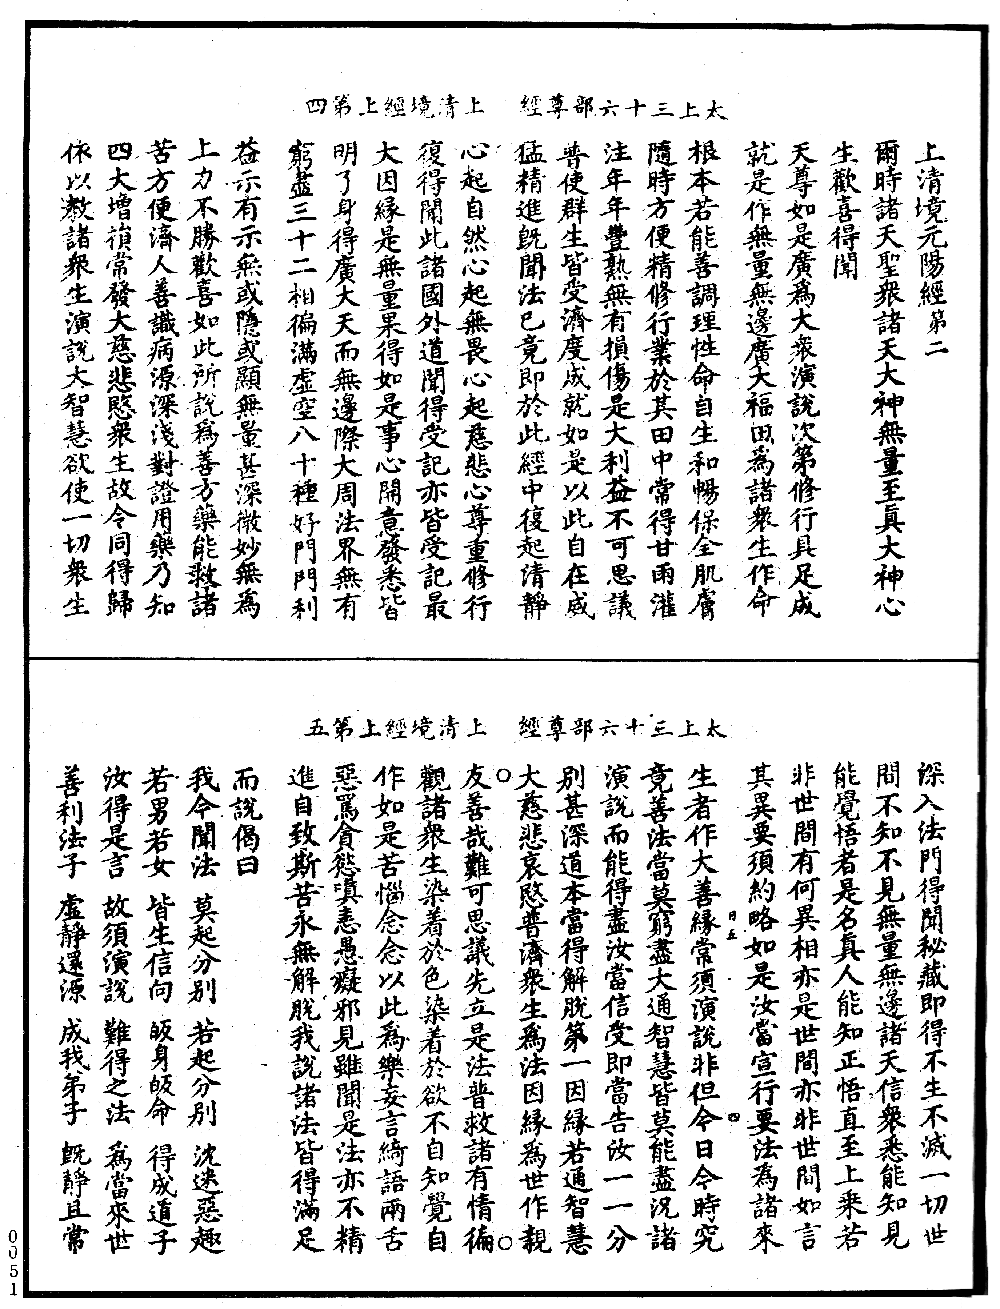 太上三十六部尊經　上清境經上第四
上清境元陽經第二
爾時諸天聖衆諸天大神無量至真大神心
生歡喜得聞
天尊如是廣爲大衆演說次第修行具足成
就是作無量無邊廣大福田爲諸衆生作命
根本若能善調理性命自生和暢保全肌膚
隨時方便精修行業於其田中常得甘雨灌
注年年豐熟無有損傷是大利益不可思議
普使群生皆受濟度成就如是以此自在威
猛精進旣聞法已竟即於此經中復起清靜
心起自然心起無畏心起慈悲心尊重修行
復得聞此諸國外道聞得受記亦皆受記最
大因緣是無量果得如是事心開意發悉皆
明了身得廣大天而無邊際大周法界無有
窮盡三十二相徧滿虛空八十種好門門利
益示有示無或隱或顯無量甚深微妙無爲
上力不勝歡喜如此所說爲善方藥能救諸
苦方便濟人善識病源深淺對證用藥乃知
四大增損常發大慈悲愍衆生故令同得歸
依以教諸衆生演說大智慧欲使一切衆生
太上三十六部尊經　上清境經上第五
深入法門得聞秘藏即得不生不滅一切世
間不知不見無量無邊諸天信衆悉能知見
能覺悟者是名真人能知正悟直至上乘若
非世間有何異相亦是世間亦非世間如言
其異要須約略如是汝當宣行要法爲諸來
日五　四
生者作大善緣常須演說非但今日今時究
竟善法當莫窮盡大通智慧皆莫能盡況諸
演說而能得盡汝當信受即當告汝一一分
別甚深道本當得解脫第一因緣若通智慧
大慈悲哀愍普濟衆生爲法因緣爲世作親
友善哉難可思議先立是法普救諸有情徧
觀諸衆生染着於色染着於欲不自知覺自
作如是苦惱念念以此爲樂妄言綺語兩舌
惡罵貪慾嗔恚愚癡邪見雖聞是法亦不精
進自致斯苦永無解脫我說諸法皆得滿足
而說偈曰
我今聞法　莫起分別　若起分別　沈迷惡趣
若男若女　皆生信向　皈身皈命　得成道子
汝得是言　故須演說　難得之法　爲當來世
善利法子　虛靜還源　成我弟子　旣靜且常
0051